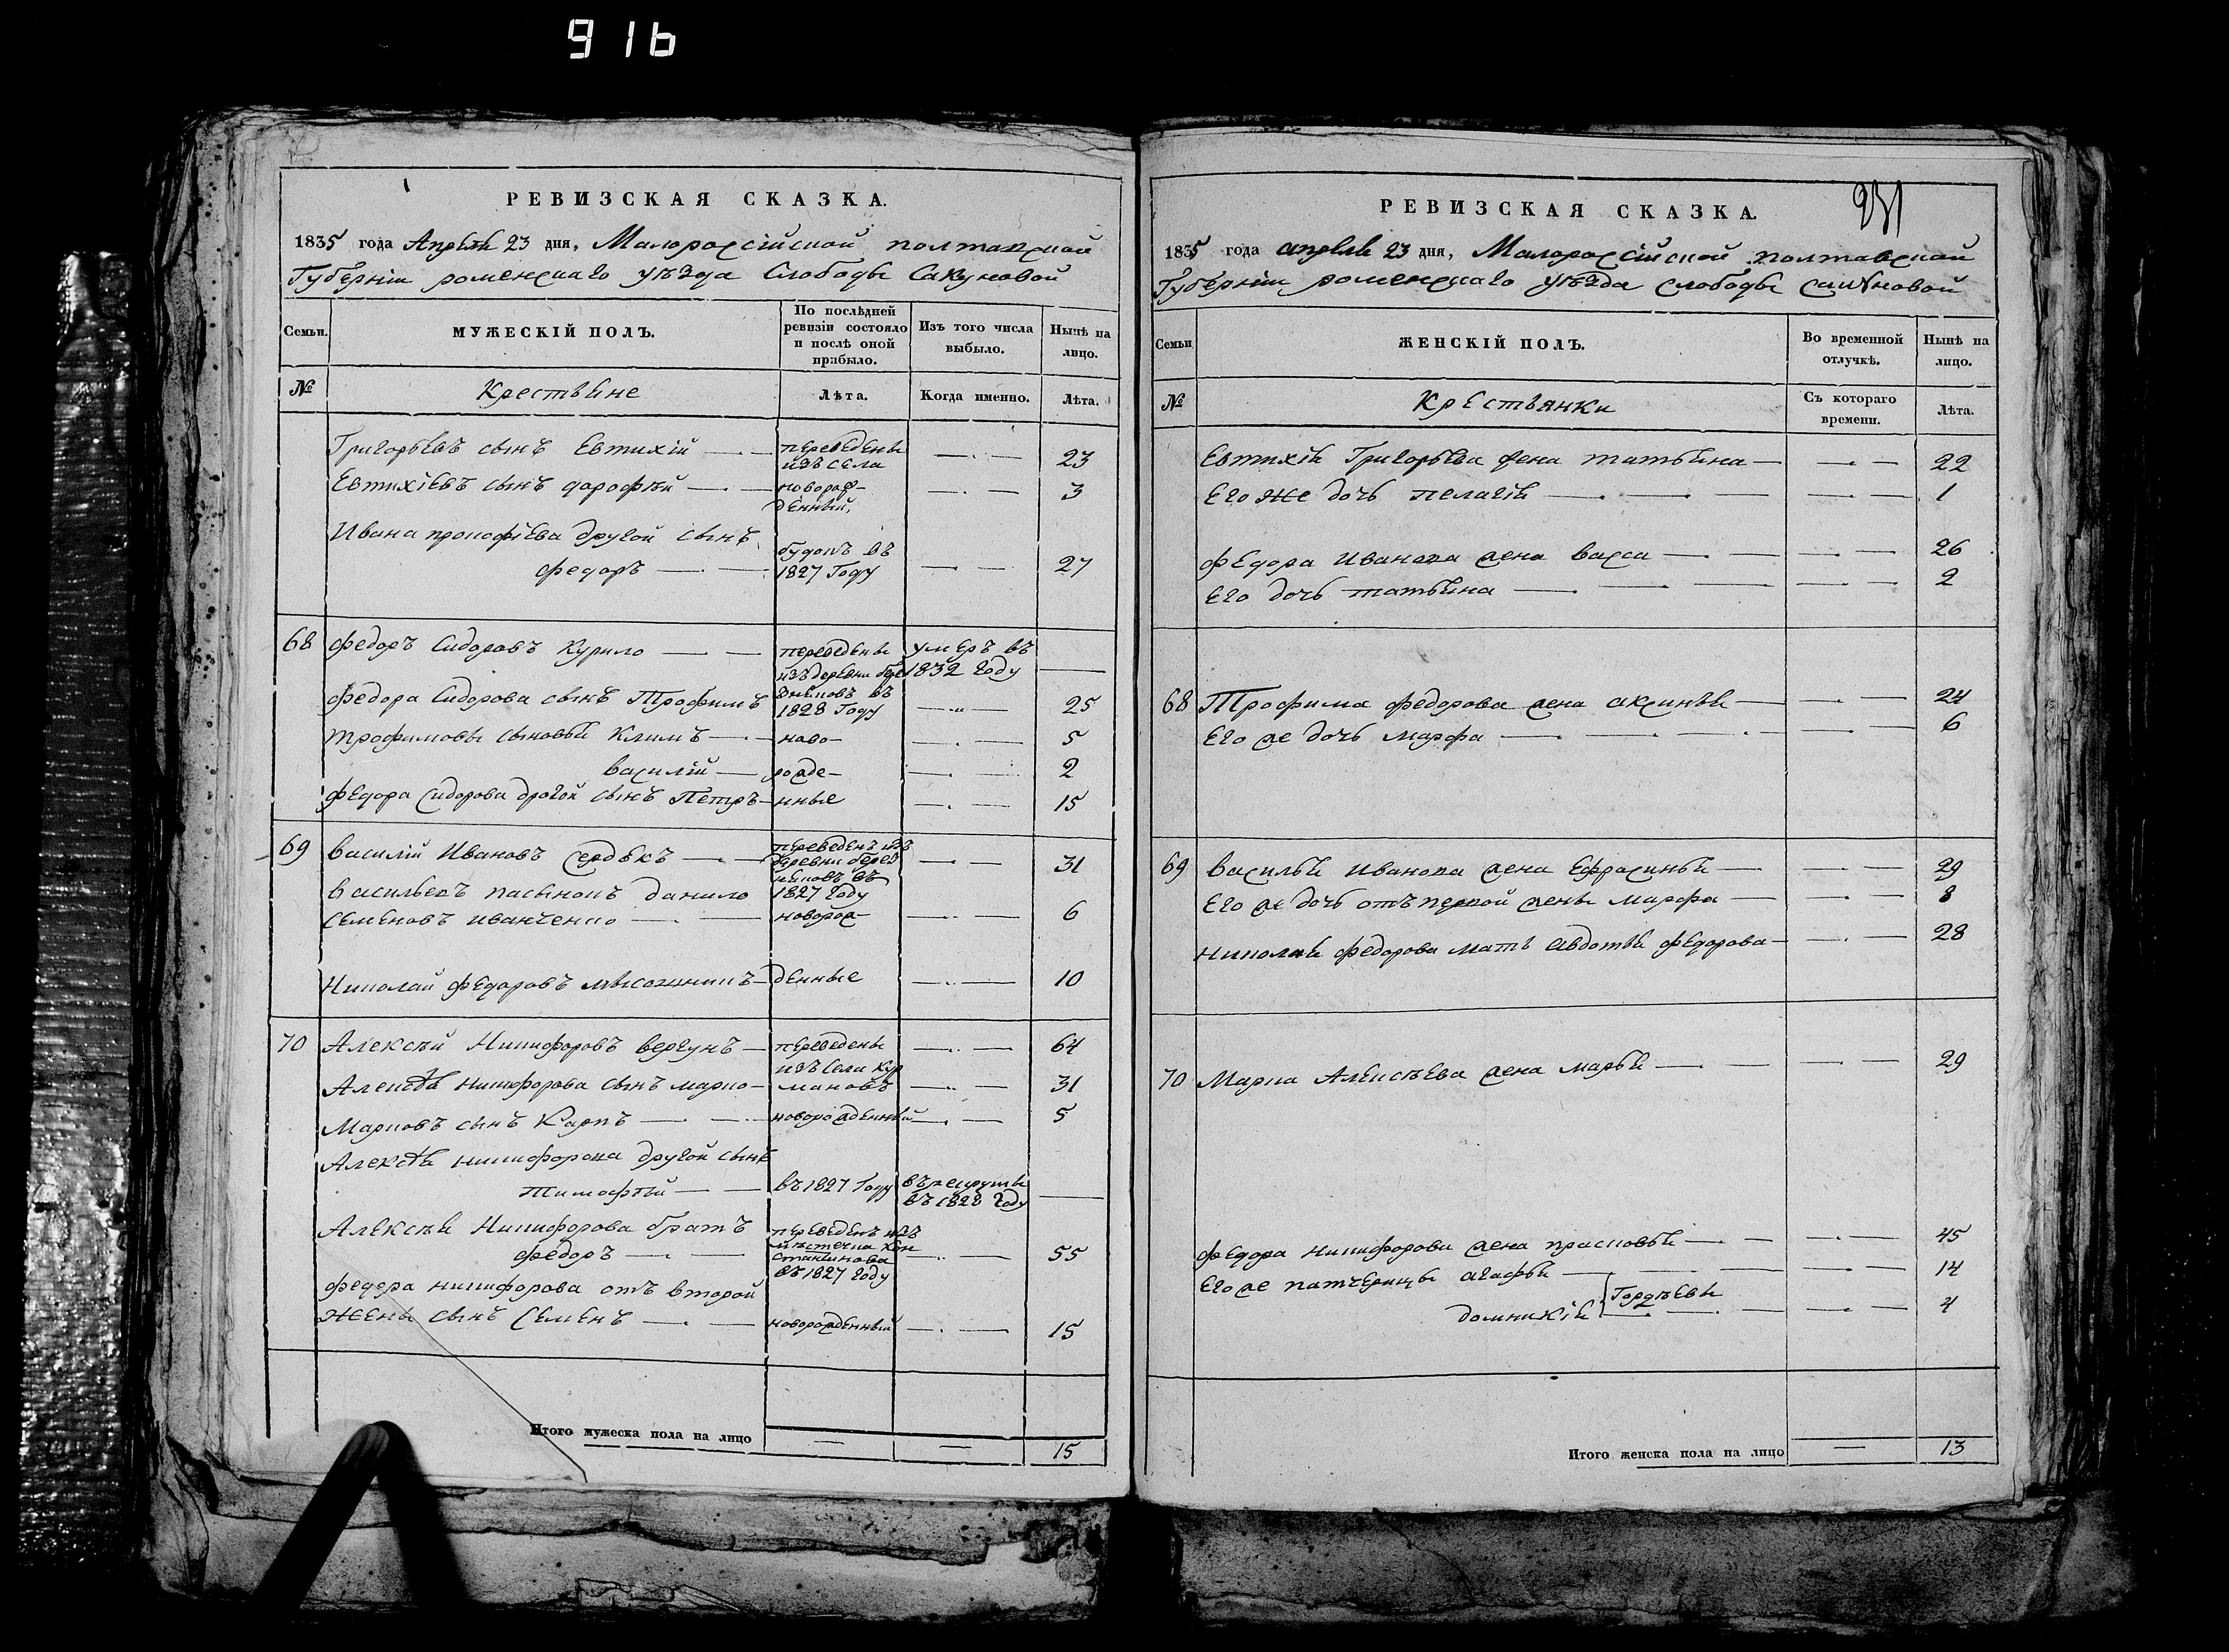 916
РЕВИЗСКАЯ СКАЗКА.
1835 года Апреля 23 дня, Малороссійской полтавской
Губерніи роменскаго уѣзда Слободы Сакуновой
Семьи.
МУЖЕСКІЙ ПОЛЪ.
По послѣдней ревизіи состояло и послѣ оной прибыло.
Изъ того числа выбыло.
Нынѣ на лицо.
№
Крестьяне
Лѣта.
Когда именно.
Лѣта.
Григорьевъ сынъ Евтихій переведены изъ села 23
Евтихіевъ сынъ дорофѣй новорож-денный, 3
Ивана прокофіева другой сынъ
федоръ въ 1827 Году 27
68 федоръ Сидоровъ Курило переведены изъ деревни умеръ въ 1832 году
федора Сидорова сынъ Трофимъ въ 1828 Году 25
трофимовы сыновья Климъ ново- 5
василій рожде- 2
федора Сидорова другой сынъ Петръ нные 15
69 василій Ивановъ Сердюкъ переведенъ изъ деревни въ 1827 году 31
васильевъ пасынокъ данило
семеновъ иванченко новорож- 6
Николай федоровъ денные 10
70 Алексѣй Никифоровъ вергунъ переведены 64
Алексѣя никифорова сынъ марко изъ села Курмановъ 31
Марковъ сынъ Карпъ новорожденный 5
Алексѣя никифорова другой сынъ
тимофѣй въ 1827 Году въ рекруты въ 1828 Году
Алексѣя Никифорова братъ
федоръ переведенъ изъ мѣстечка Константинова въ 1827 году 55
федора никифорова отъ второй
жены сынъ Семенъ новорожденный 15
Итого мужеска пола на лицо — — 15
231
РЕВИЗСКАЯ СКАЗКА.
1835 года апреля 23 дня, Малороссійской полтавской
Губерніи роменскаго уѣзда слободы сакуновой
Семьи
ЖЕНСКІЙ ПОЛЪ.
Во временной отлучкѣ.
Нынѣ на лицо.
№
Крестьянки
Съ котораго времени.
Лѣта.
Евтихія Григорьева жена татьяна 22
Его же дочь пелагія 1
федора Иванова жена васса 26
Его дочь татьяна 2
68 Трофима федорова жена аксинья 24
Его же дочь марфа 6
69 Василья иванова жена Ефросинья 29
Его же дочь отъ первой жены марфа 8
николая федорова мать авдотья федорова 28
70 Марка Алексѣева жена марья 29
федора никифорова жена прасковья 45
Его же патчерицы агафья 14
домникія Гордѣевы 4
Итого женска пола на лицо — 13